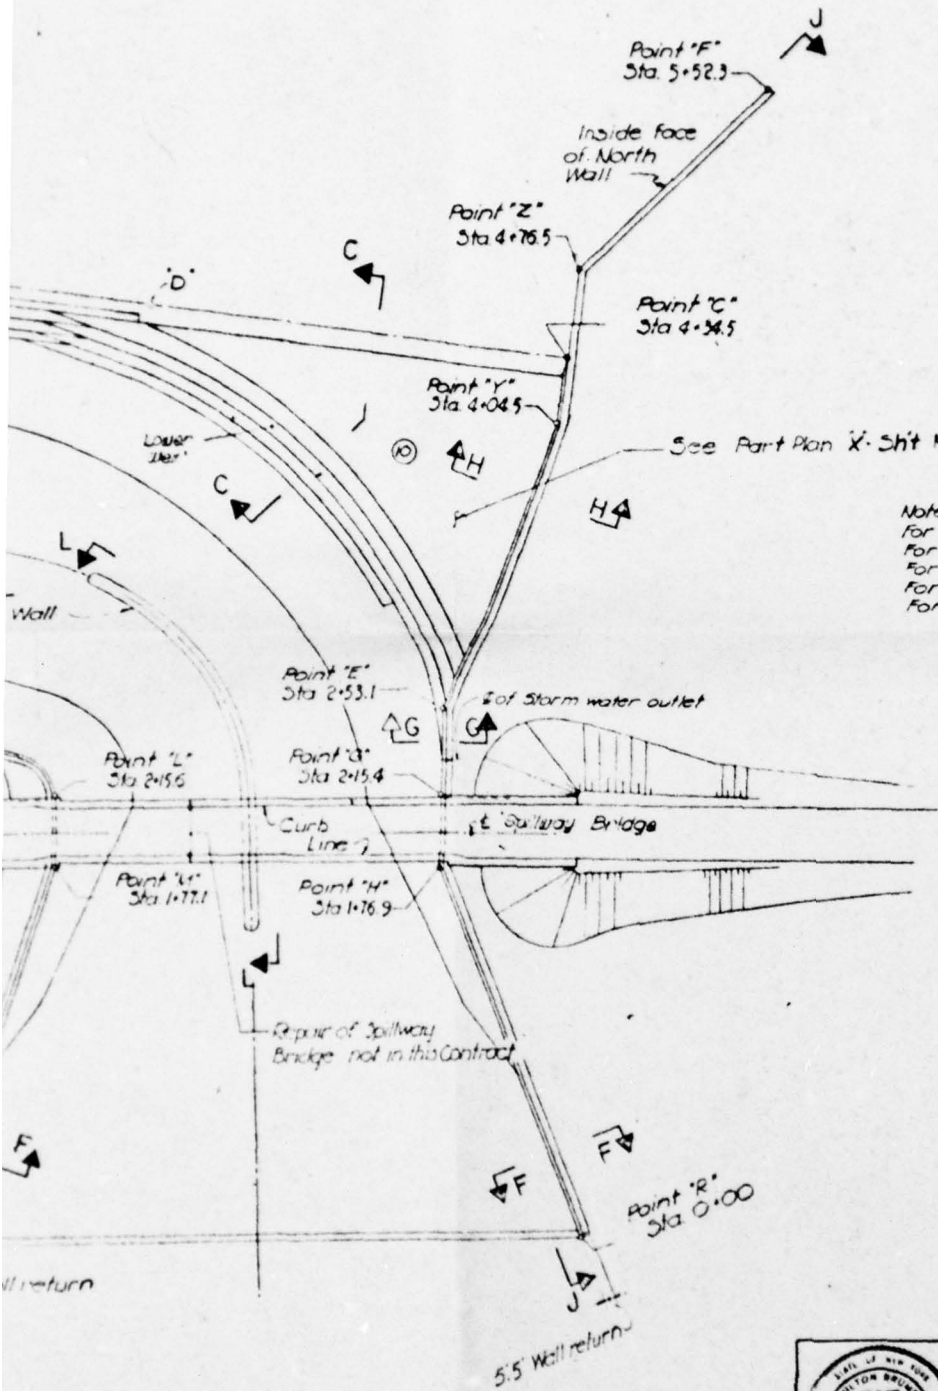 J
Point "F"
Sta. 5+52.3
Inside face
of North
Wall
Point "Z"
Sta. 4+76.5
C
"D"
Point "C"
Sta. 4+34.5
Point "Y"
Sta. 4+04.5
Lower
10
H
See Part Plan "X"- Sh't
C
H
L
For
For
For
For
For
Wall
Point "E"
Sta. 2+53.1
℄ of Storm water outlet
G
G
Point "L"
Sta. 2+15.6
Point "G"
Sta. 2+15.4
Curb
Line
℄ Spillway Bridge
Point "M"
Sta. 1+77.1
Point "H"
Sta. 1+76.9
L
Repair of Spillway
Bridge not in this Contract
F
F
F
Point "R"
Sta. 0+00
return
J
5.5' Wall return
STATE OF NEW YORK